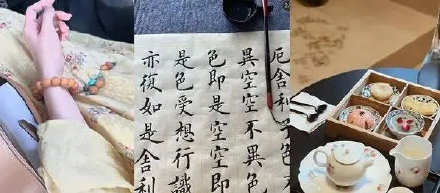 厄舍利子色
異空空不異色
色即是空空即
是色受想行識
亦復如是舍利